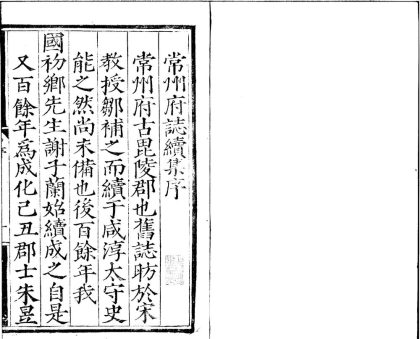 常州府誌續集序
常州府古毘陵郡也舊誌昉於宋
教授鄒補之而續于咸淳太守史
能之然尚未備也後百餘年我
國初鄉先生謝子蘭始續成之自是
又百餘年為成化己丑郡士朱昱